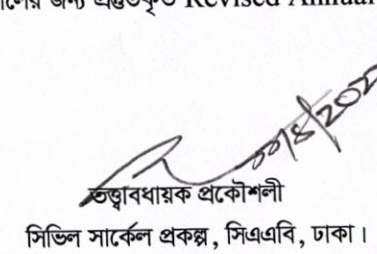 জন্য প্রস্তুতকৃত Revised Annual
তত্ত্বাবধায়ক প্রকৌশলী
সিভিল সার্কেল প্রকল্প, সিএএবি, ঢাকা।